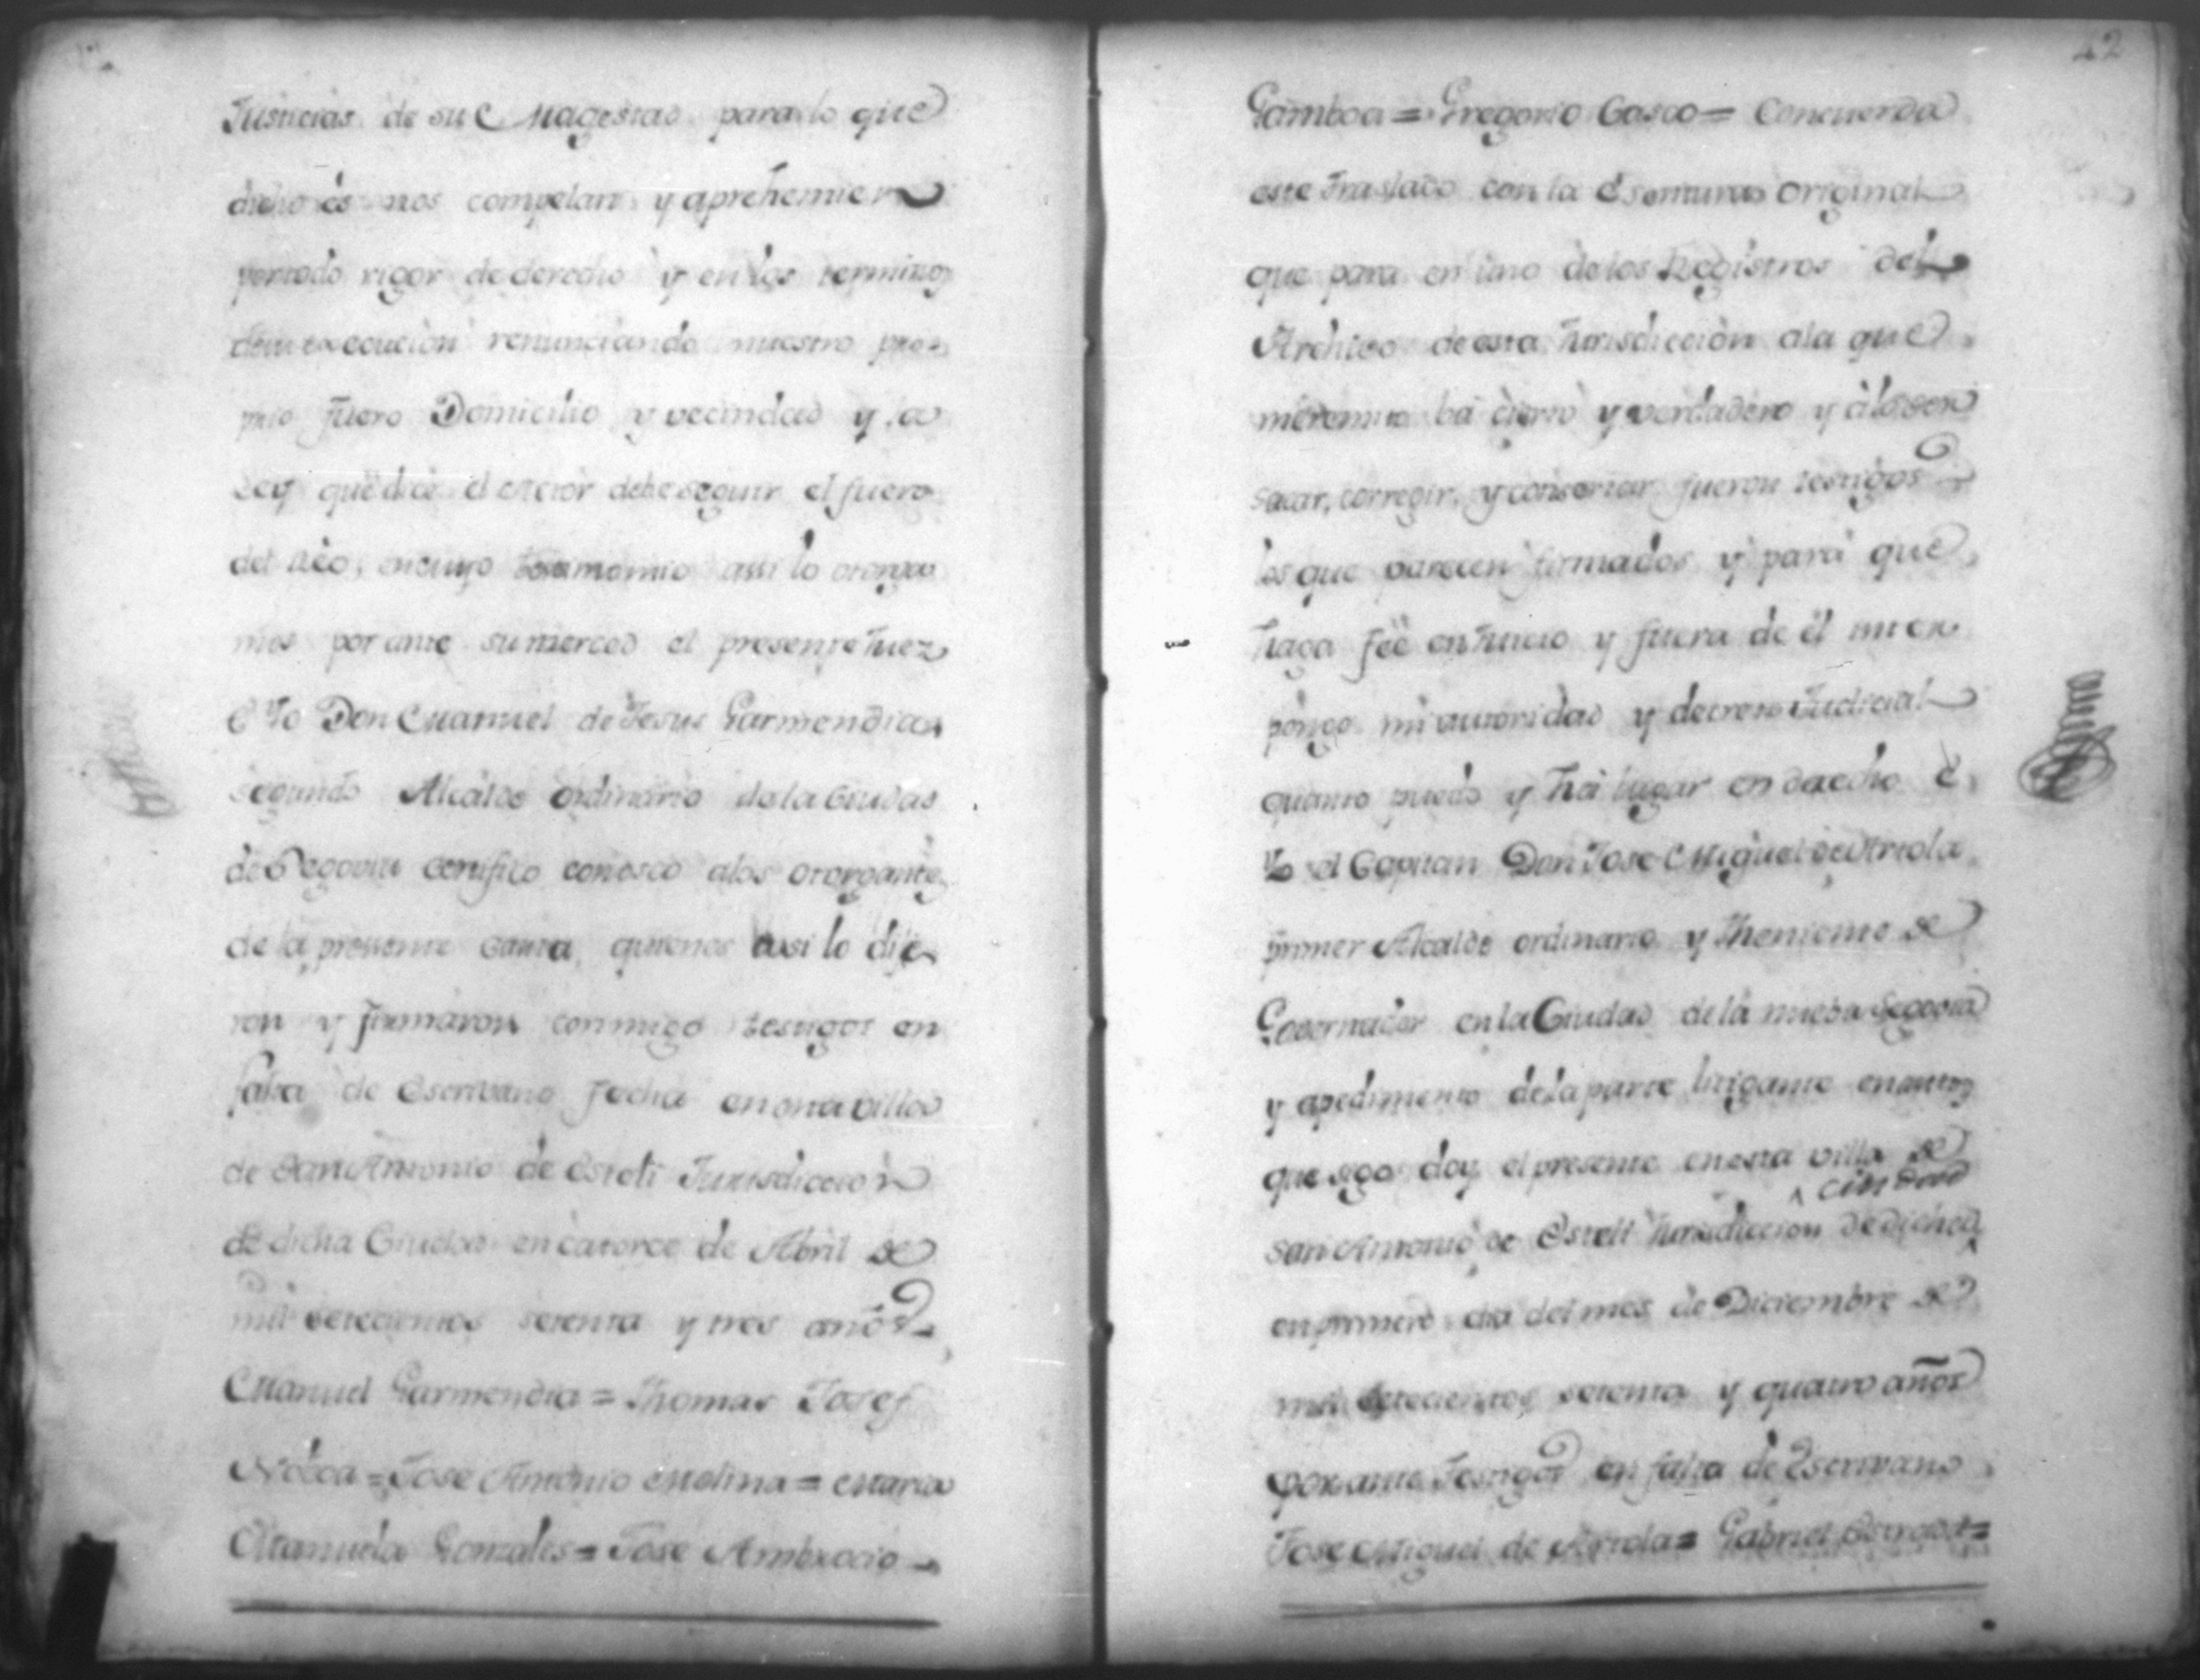 Justicias de su Magestad para lo que
dicho és nos compelan y apremien
por todo rigor de derecho y en los terminos
de su execucion renunciando nuestro pro-
prio fuero Domicilio y vecindad y la
Ley que dice el actor debe seguir el fuero
del Reo, en cuyo testimonio assi lo otorga
mos por ante su merced el presente Juez
E Yo Don Manuel de Jesus Garmendia
segundo Alcalde ordinario de la Ciudad
de Segovia certifico conosco a los otorgantes
de la presente carta, quienes asi lo dije
ron y firmaron conmigo testigos en
falta de Escribano fecha en esta villa
de San Antonio de Esteli Jurisdiccion
de dicha Ciudad en catorce de Abril de
mil setecientos setenta y tres años
Manuel Garmendia = Thomas Josef
Noboa = Jose Antonio Molina = Maria
Manuela Gonzales = Jose Ambrocio
42
Gamboa = Gregorio Gasco = Concuerda
este Traslado con la Escritura original
que para en uno de los Registros del
Archivo de esta Jurisdiccion a la que
me remito bá cierto y verdadero y à lo ver
sacar, corregir, y consertar fueron testigos
los que parecen firmados y para que
haga feé en Juicio y fuera de él inter
pongo mi autoridad y decreto Judicial
quanto puedo y há lugar en derecho é
Yo el Capitan Don Jose Miguel de Arriola
primer Alcalde ordinario y Theniente de
Governador en la Ciudad de la nueba Segovia
y apedimento de la parte litigante en autos
que sigo doy el presente en esta villa de
ciudad
San Antonio de Esteli Jurisdiccion de dicha
en primero dia del mes de Diciembre de
mil setecientos setenta y quatro años
por ante Testigos en falta de Escrivano
Jose Miguel de Arriola = Gabriel =